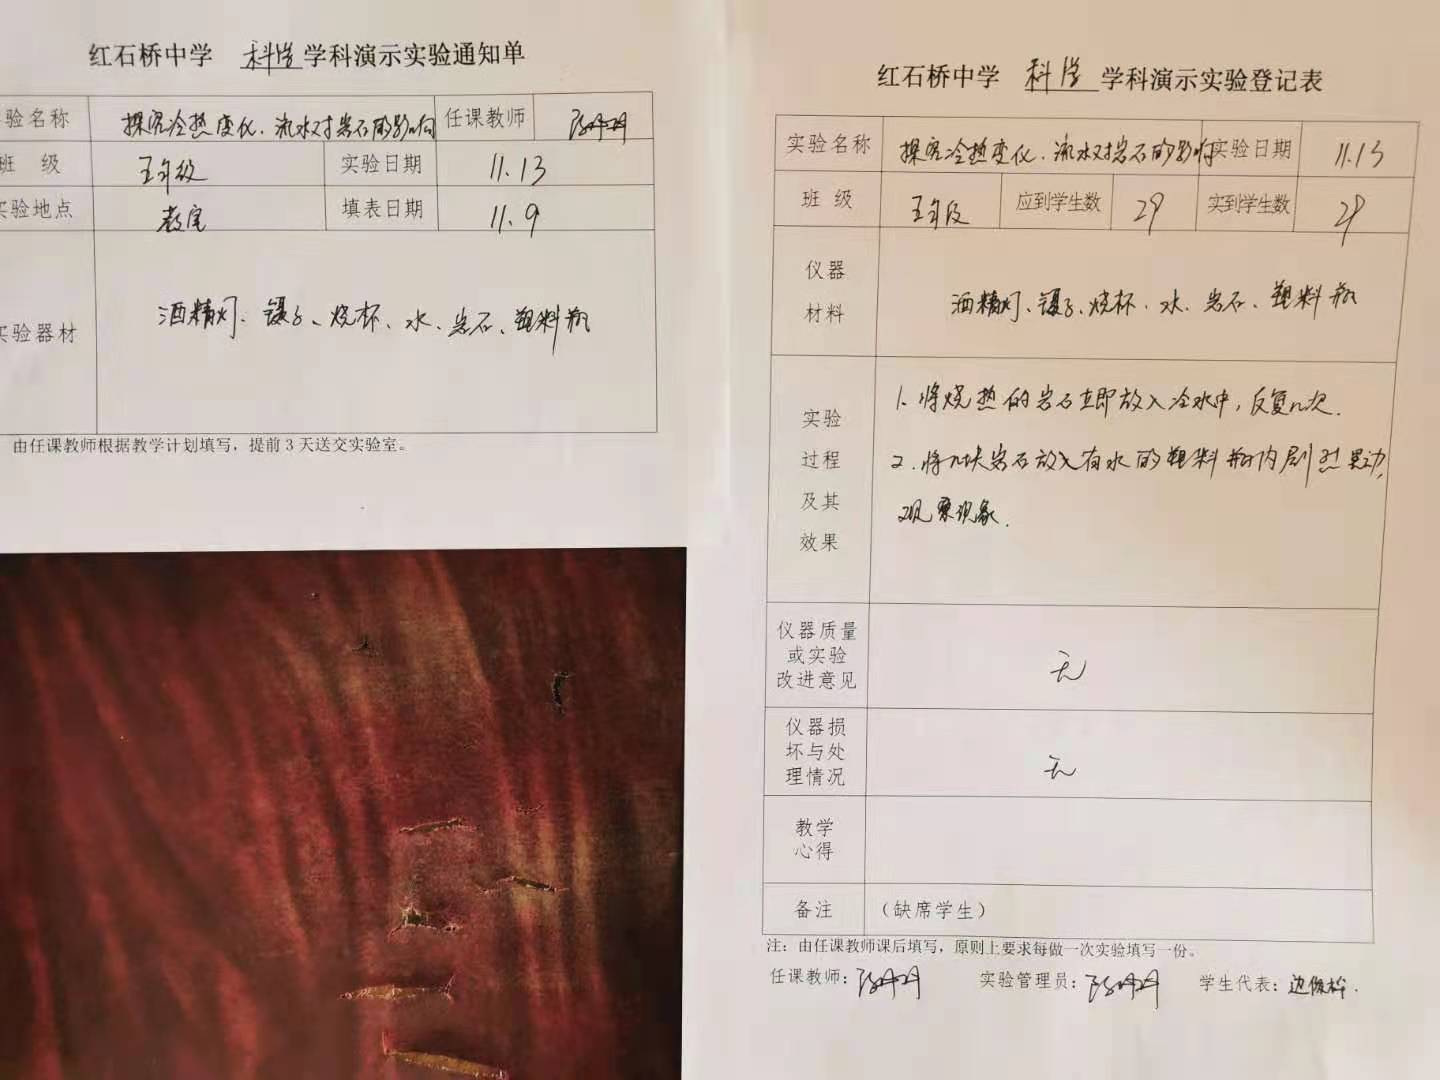 红石桥中学 科学 学科演示实验通知单
验名称 探究冷热变化、流水对岩石的影响 任课教师
班 级 五年级 实验日期 11.13
实验地点 教室 填表日期 11.9
实验器材 酒精灯、镊子、烧杯、水、岩石、塑料瓶
由任课教师根据教学计划填写，提前3天送交实验室。
红石桥中学 科学 学科演示实验登记表
实验名称 探究冷热变化、流水对岩石的影响 实验日期 11.13
班 级 五年级 应到学生数 29 实到学生数 29
仪器
材料
酒精灯、镊子、烧杯、水、岩石、塑料瓶
实验
过程
及其
效果
1、将烧热的岩石立即放入冷水中，反复几次.
2、将几块岩石放入有水的塑料瓶内剧烈晃动,
观察现象.
仪器质量
或实验
改进意见
无
仪器损
坏与处
理情况
无
教学
心得
备注 （缺席学生）
注：由任课教师课后填写，原则上要求每做一次实验填写一份。
任课教师： 实验管理员： 学生代表：边